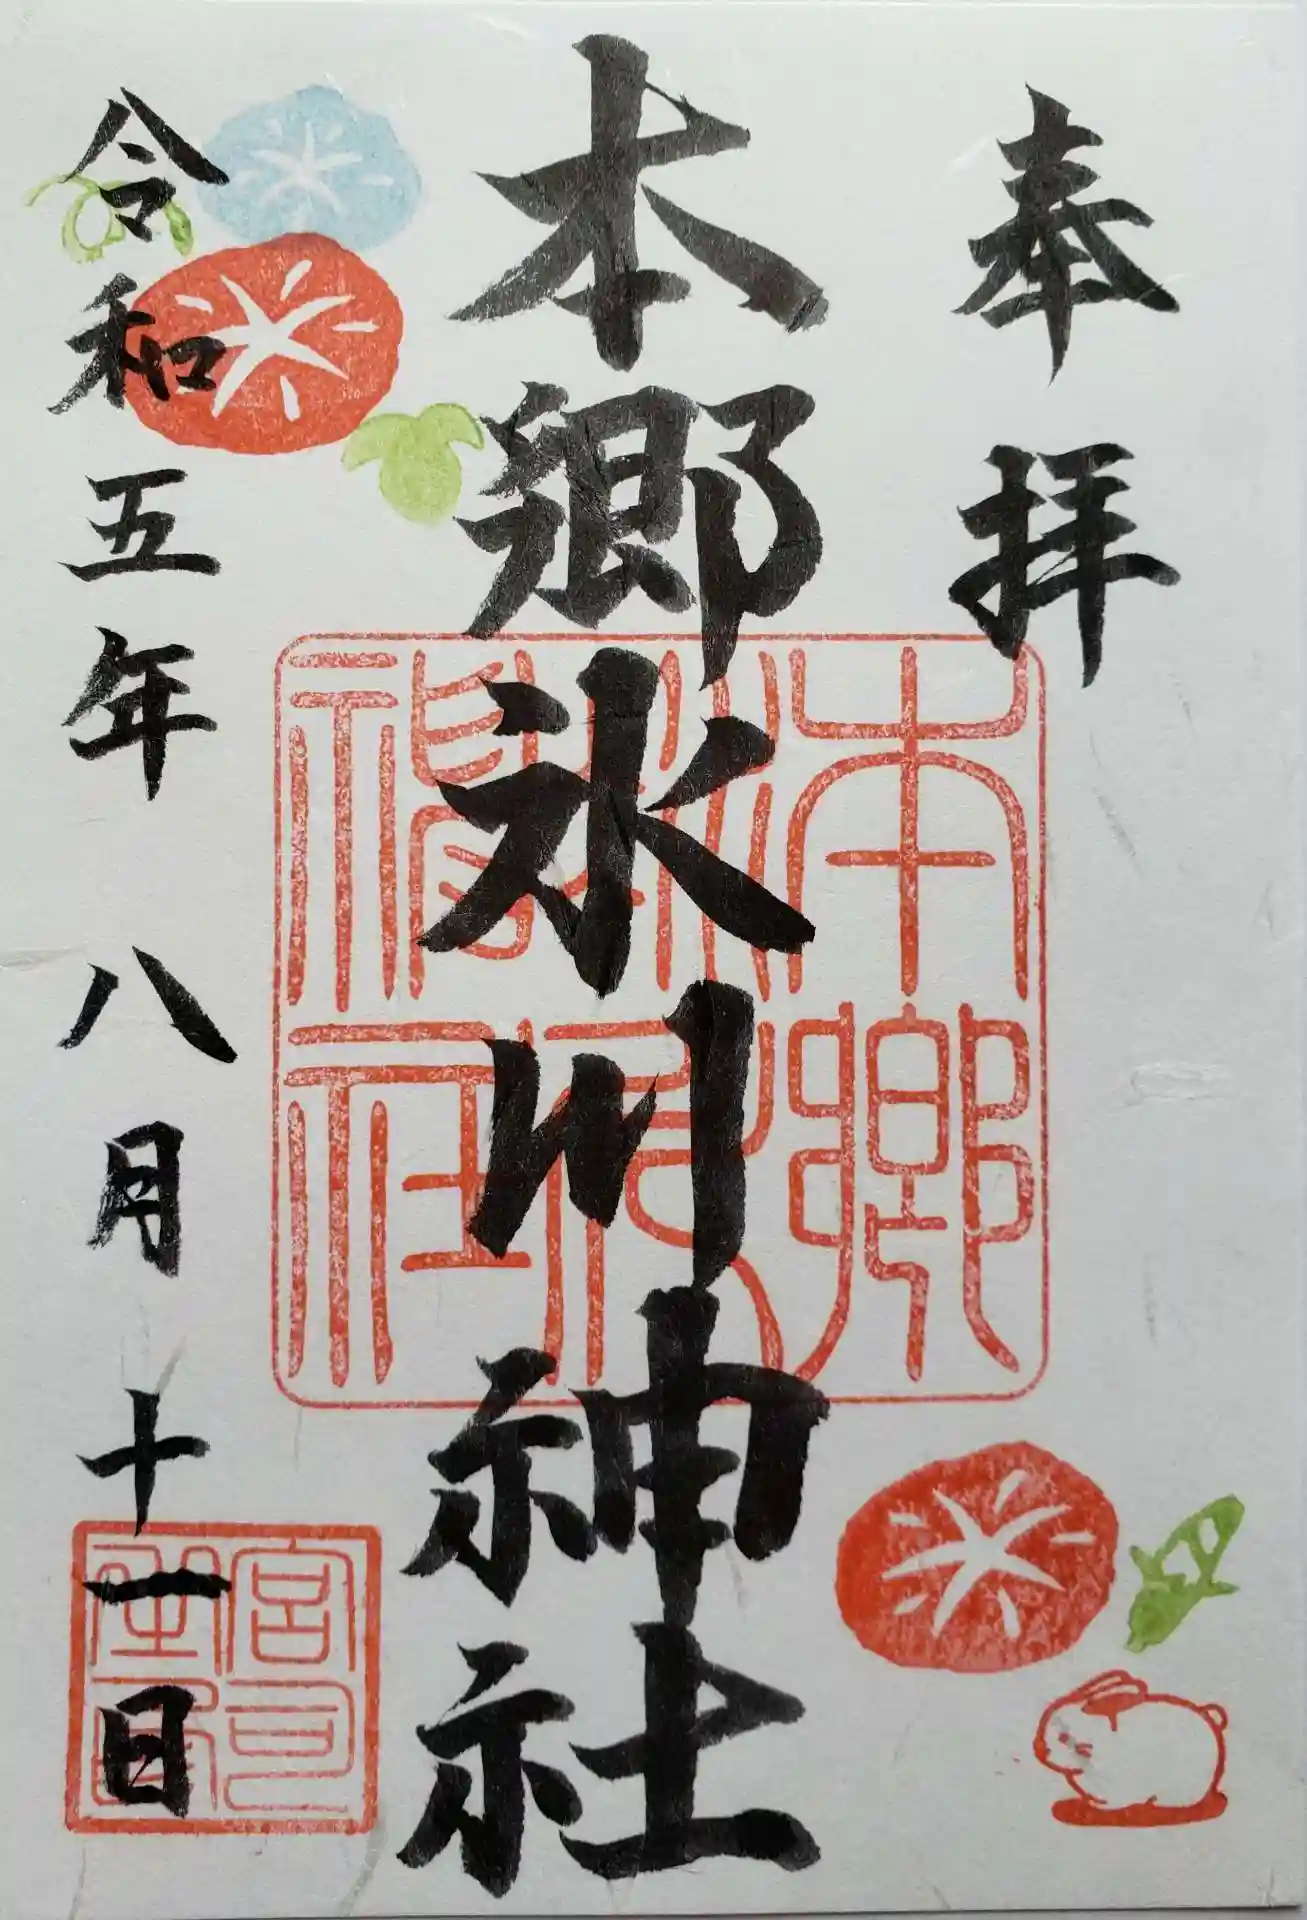 奉拝
本郷氷川神社
本郷氷川神社
令和五年八月十一日